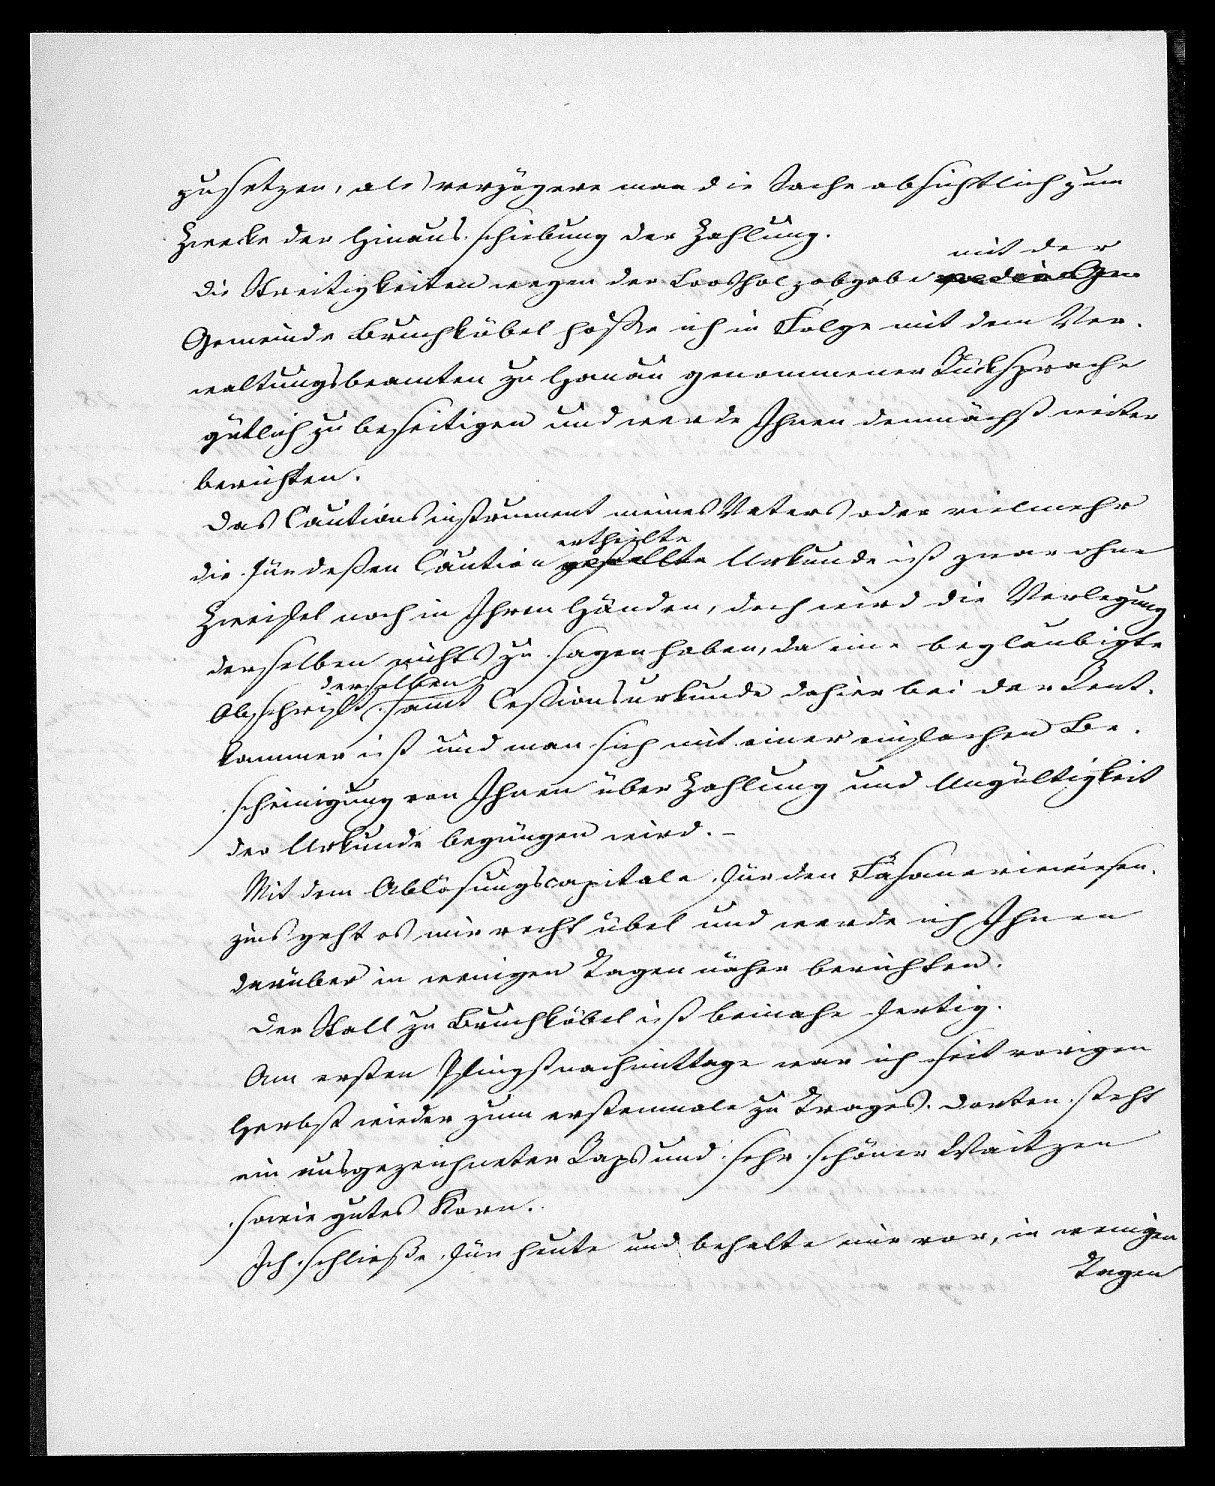 zusetzen, als verzögere man die Sache absichtlich zum
Zwecke der Hinausschiebung der Zahlung.
mit der
Die Streitigkeiten wegen der Loosholzabgabe
Gemeinde Bruchköbel hoffe ich in Folge mit dem Ver-
waltungsbeamten zu Hanau genommener Rücksprache
gütlich zu beseitigen und werde Ihnen demnächst weiter
berichten.
Das Cautionsinstrument meines Vaters oder vielmehr
ertheilte
die für deßen Caution gestellte Urkunde ist zwar ohne
Zweifel noch in Ihren Händen, doch wird die Verlegung
derselben nichts zu sagen haben, da eine beglaubigte
derselben
Abschrift sammt Ceßionsurkunde dahier bei der Rent-
kammer ist und man sich mit einer einfachen Be-
scheinigung von Ihnen über Zahlung und Ungültigkeit
der Urkunde begnügen wird. –
Mit dem Ablösungscapitale für den Fasaneriewiesen-
zins geht es mir recht übel und werde ich Ihnen
darüber in wenigen Tagen näher berichten.
Der Stall zu Bruchköbel ist beinahe fertig.
Am ersten Pfingstnachmittage war ich seit vorigen
Herbst wieder zum erstenmale zu Trages. Dorten steht
ein ausgezeichneter Raps und sehr schöner Waitzen
sowie gutes Korn.
Ich schließe für heute und behalte mir vor, in wenigen
Tagen